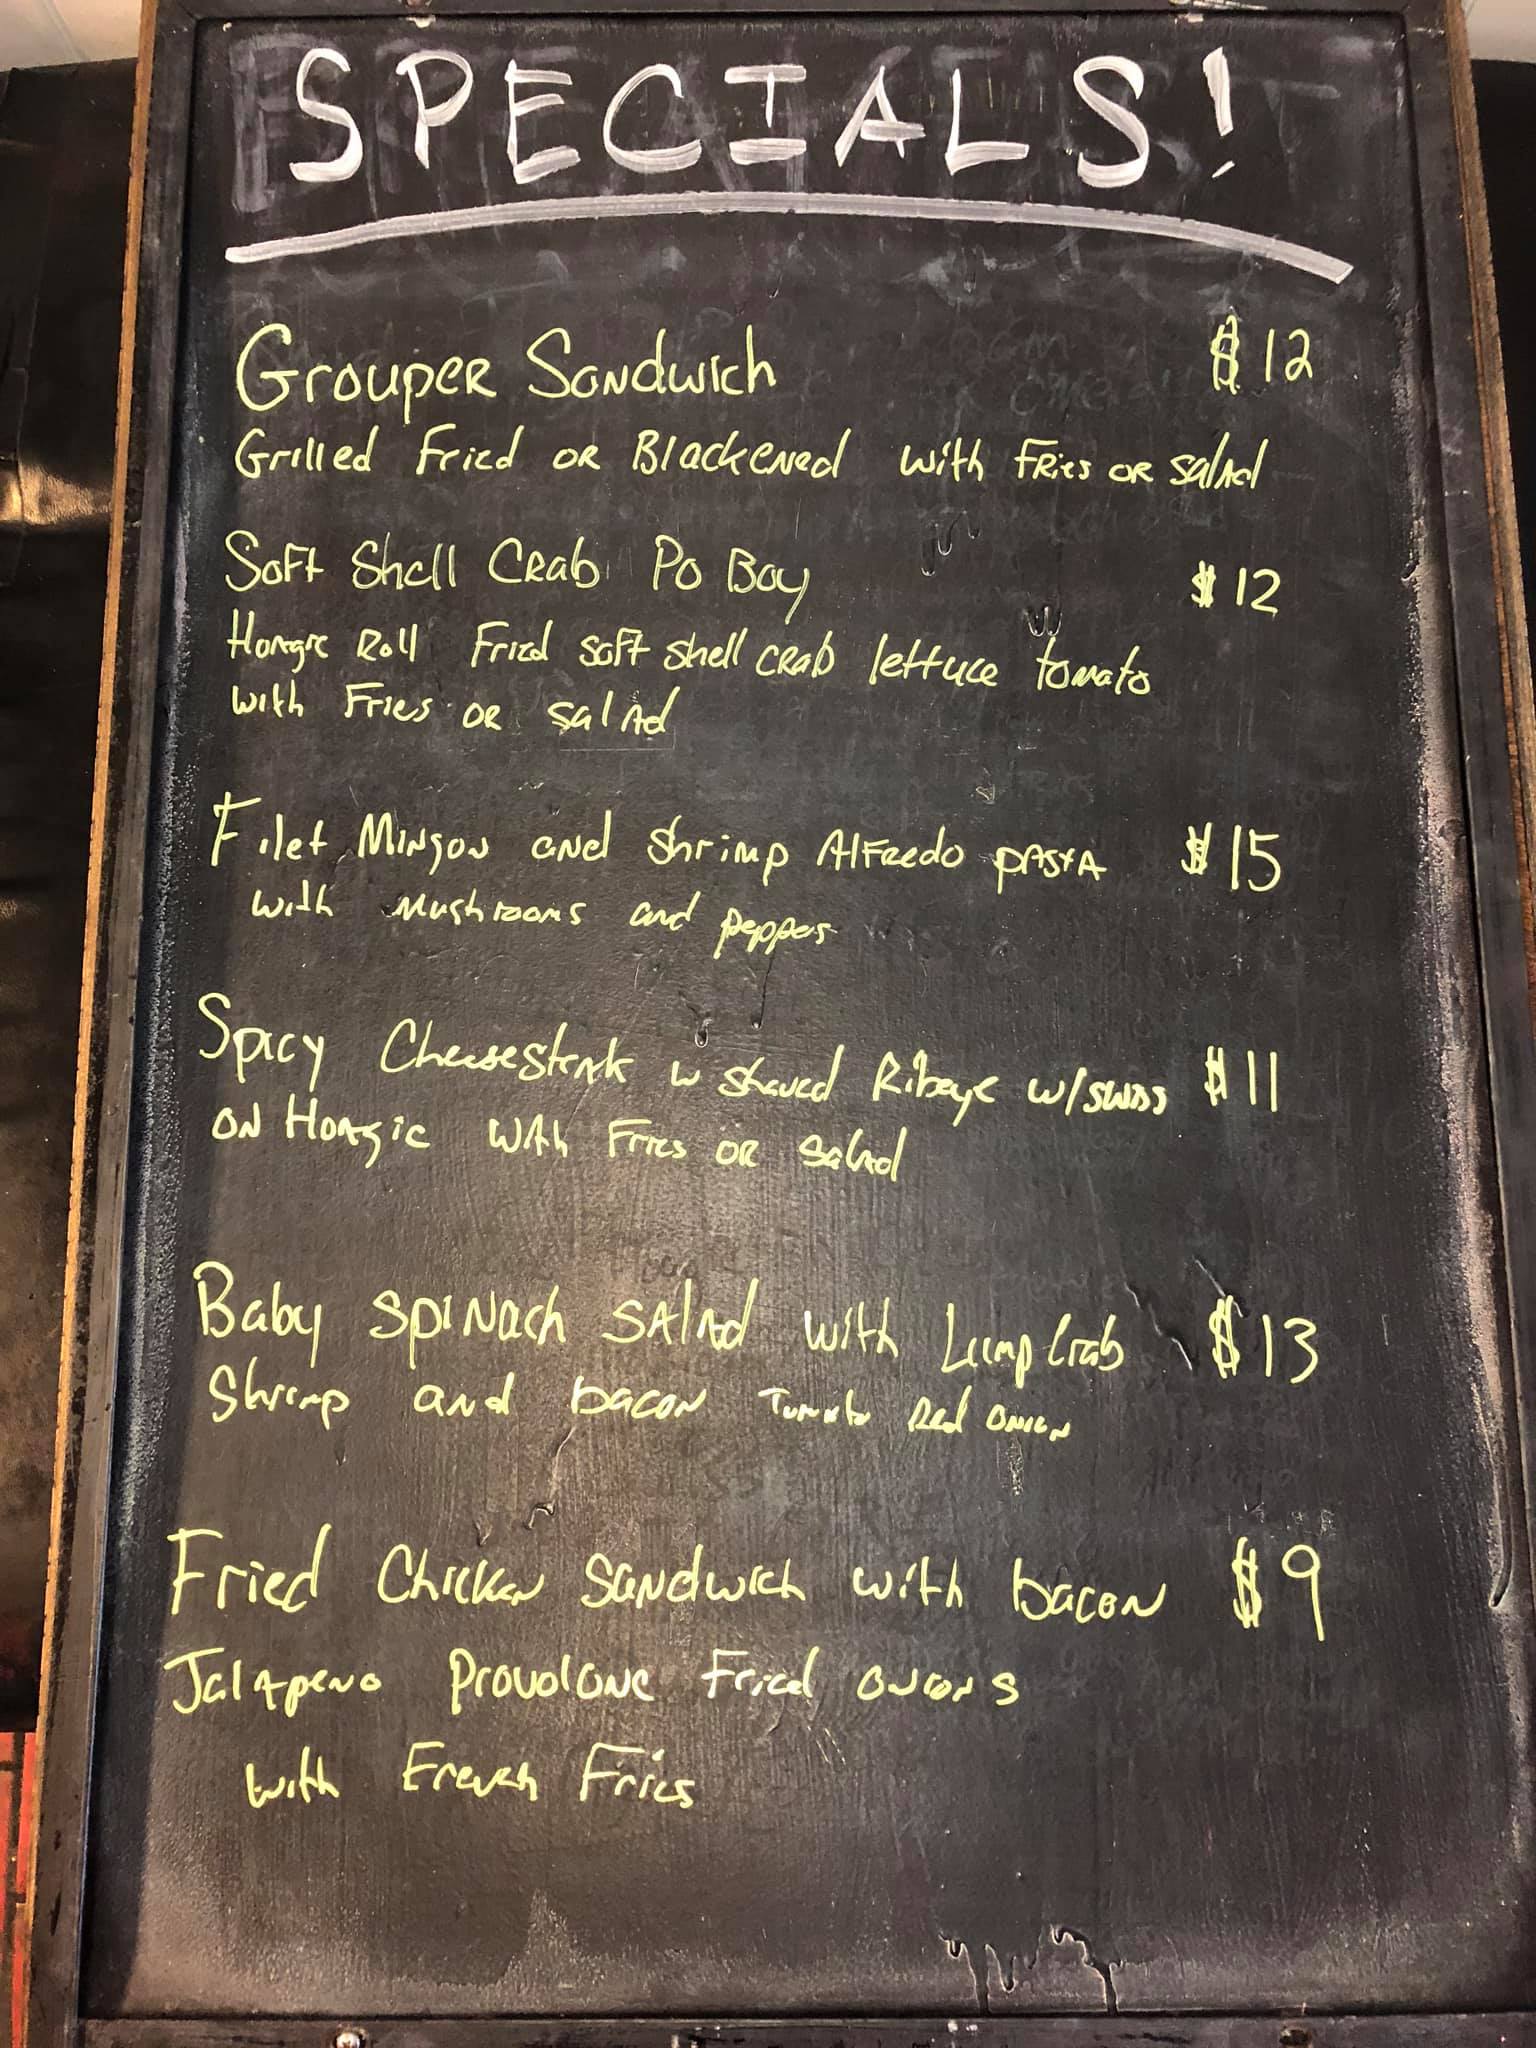 SPECIALS!
Grouper Sandwich $12
Grilled Fried or Blackened with Fries or Salad
Soft Shell Crab Po Boy $12
Hoagie Roll Fried soft shell crab lettuce tomato
with Fries or salad
Filet Mingon and Shrimp Alfredo pasta $15
with Mushrooms and peppers
Spicy Cheesesteak w shaved Ribeye w/swiss $11
on Hoagie with Fries or Salad
Baby Spinach Salad with Lump Crab $13
Shrimp and bacon Tomato Red onion
Fried Chicken Sandwich with bacon $9
Jalapeno Provolone Fried onions
with French Fries